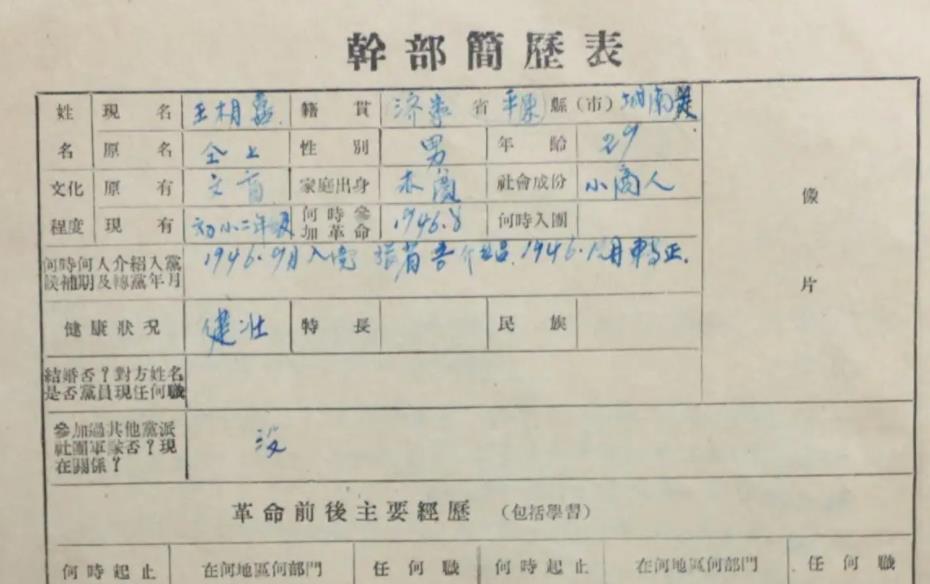 幹部簡歷表
姓 現名 王相 籍貫 济 省 平 縣(市) 南
名 原名 仝上 性別 男 年齡 29
文化 原有 文盲 家庭出身 社會成份 小商人
程度 現有 初小二年 何時參加革命 1946.8 何時入團
何時何人介紹入黨
候補期及轉黨年月
1946.9月入党 介 1946. 月轉正.
像片
健康狀況 健壯 特長 民族
結婚否?對方姓名
是否黨員現任何職
參加過其他黨派
社團軍隊否?現
在關係?
没
革命前後主要經歷 (包括學習)
何時起止 在何地區何部門 任何職 何時起止 在何地區何部門 任何職